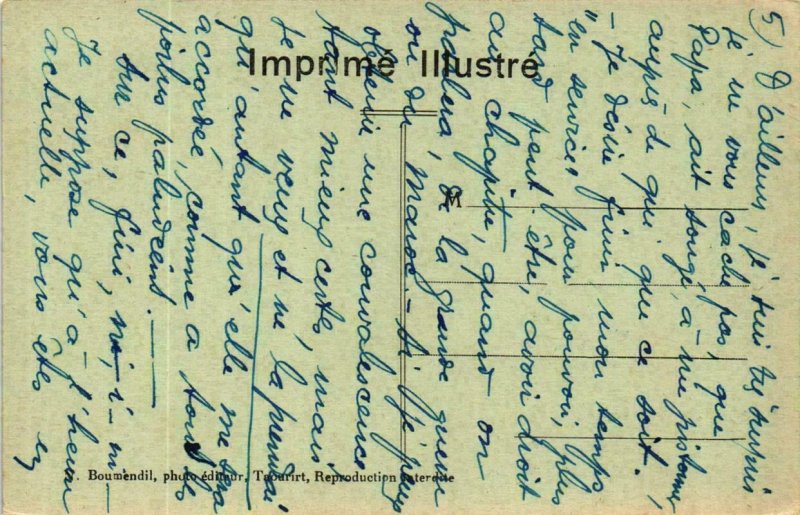 5) D'ailleurs, je suis très surpris
je ne vous cache pas, que
Papa, ait songé, à me pistonner,
auprès de qui que ce soit.
- Je désire finir mon temps
"en service" pour pouvoir, plus
tard peut-être, avoir droit
au chapitre, quand on
parlera, de la grande guerre
ou du Maroc - Si je puis
obtenir une convalescence
tant mieux certes, mais
je ne veux et ne la prendrai
qu'autant qu'elle me sera
accordée, comme à tous les
poilus paludéens. —
Sur ce, fini, ni, i - ni -
Je suppose qu'à l'heure
actuelle, vous êtes en
Imprimé Illustré
M
Boumendil, photo éditeur, Taourirt, Reproduction interdite